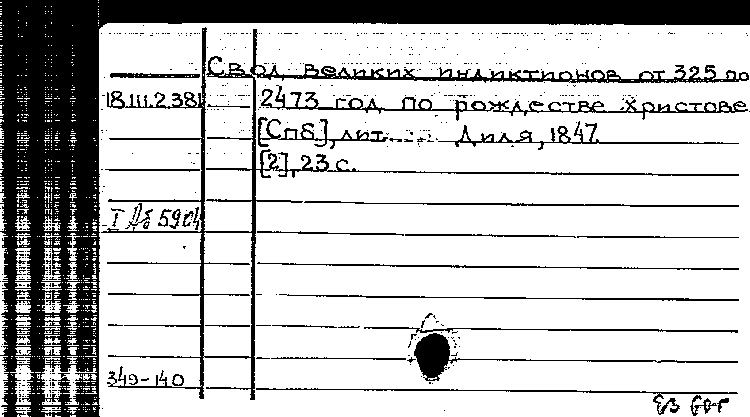 Свод великих индиктионов от 325 по
18.III.2.381 2473 год по рождестве Христове
[Спб], лит. Диля, 1847.
[2], 23 с.
I Аб 5904
349-140